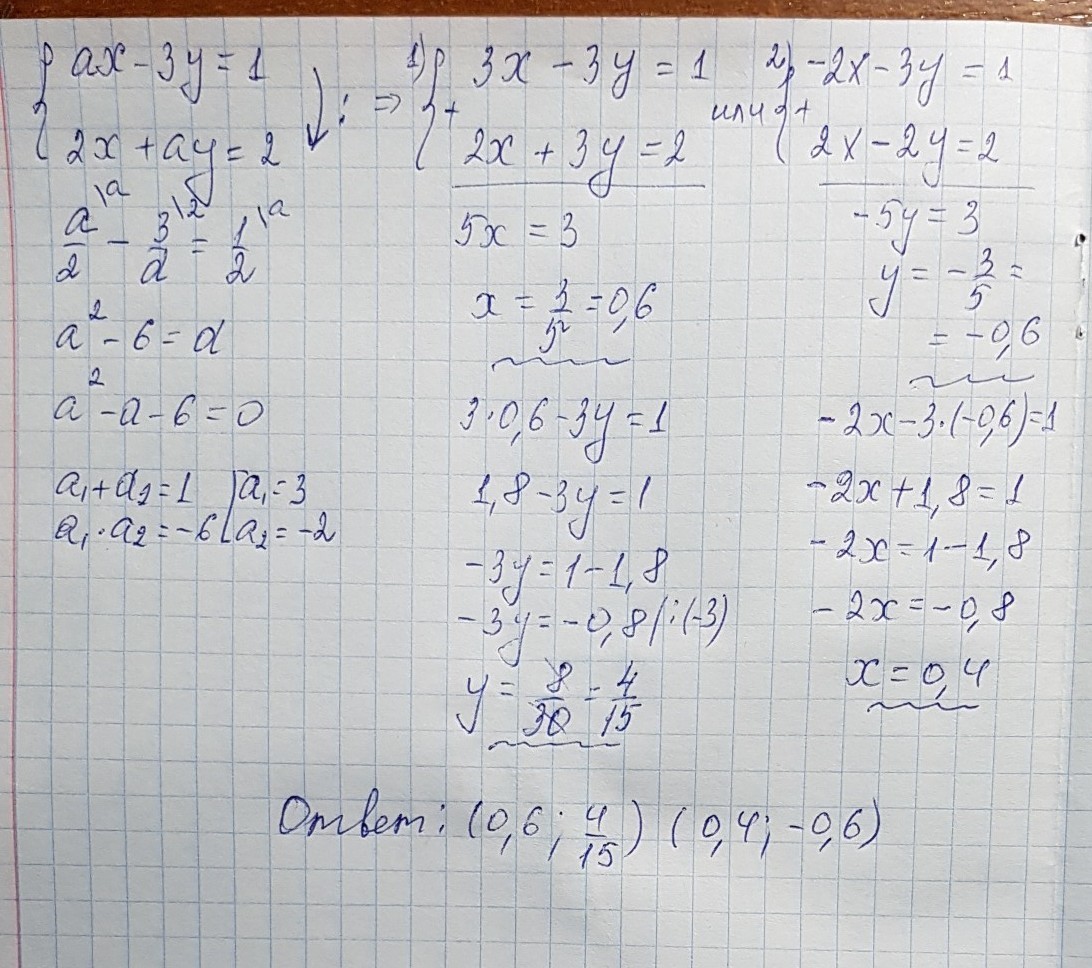 { ax - 3y = 1
2x + ay = 2 ↓ : ⇒
a/2 \a - 3/a \2 = 1/2 \a
a² - 6 = a
a² - a - 6 = 0
a₁ + a₂ = 1 [ a₁ = 3
a₁ · a₂ = -6 [ a₂ = -2
1) { 3x - 3y = 1
+ 2x + 3y = 2
5x = 3
x = 3/5 = 0,6
3·0,6 - 3y = 1
1,8 - 3y = 1
-3y = 1 - 1,8
-3y = -0,8 | :(-3)
y = 8/30 = 4/15
или
2) { -2x - 3y = 1
+ 2x - 2y = 2
-5y = 3
y = -3/5 =
= -0,6
-2x - 3·(-0,6) = 1
-2x + 1,8 = 1
-2x = 1 - 1,8
-2x = -0,8
x = 0,4
Ответ: (0,6; 4/15) (0,4; -0,6)